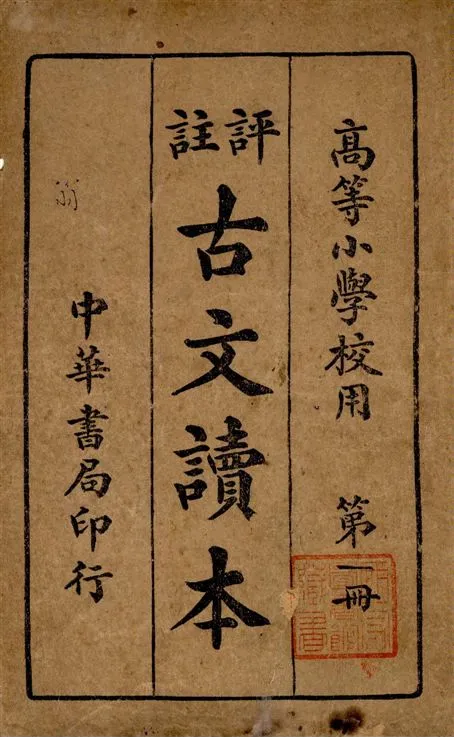 高等小學校用 第一冊
評註
古文讀本
中華書局印行